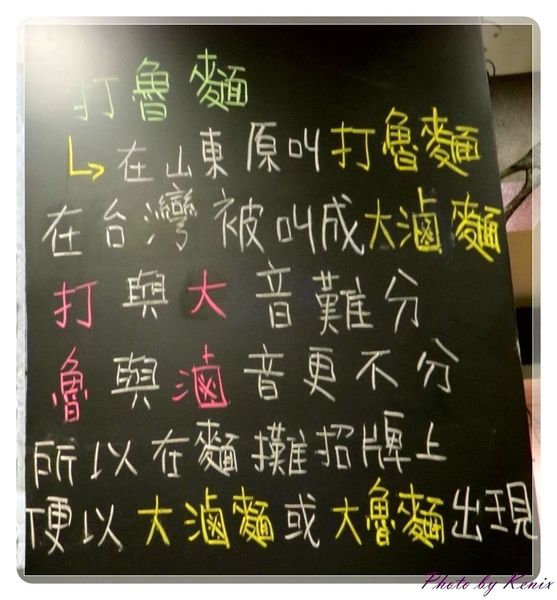 打魯麵
↳在山東原叫打魯麵
在台灣被叫成大滷麵
打與大音難分
魯與滷音更不分
所以在麵攤招牌上
便以大滷麵或大魯麵出現
Photo by Kenix